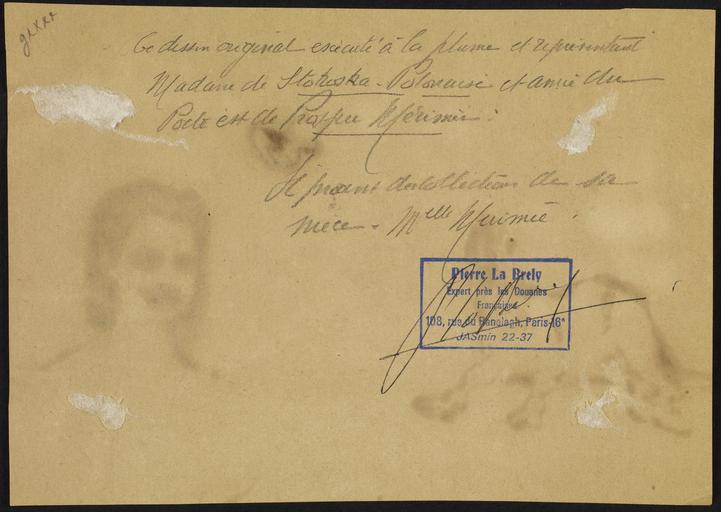 gxxxx
Ce dessin original exécuté à la plume et représentant
Madame de Stokoska - Polonaise et amie du
Poete est de Prosper Mérimée.
Il provient des collections de sa
niece. Mlle Mérimée.
Pierre La Brely
Expert près les Douanes
Françaises
108, rue du Ranelagh, Paris-16e
JASmin 22-37